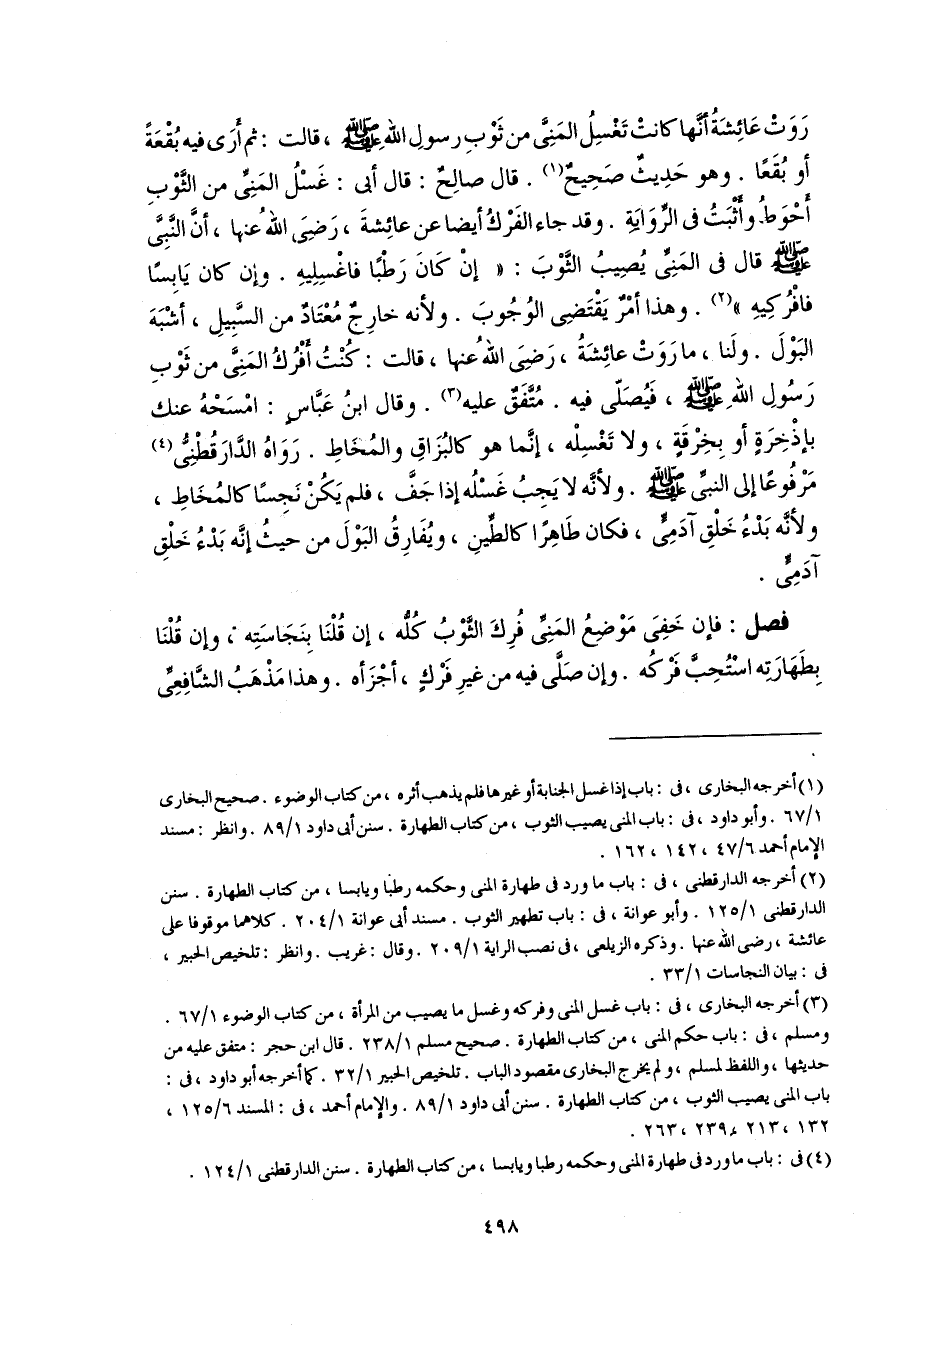 رَوَتْ عَائِشَةُ أنَّها كانتْ تَغْسِلُ المَنِىَّ من ثَوْبِ رسولِ اللهِ ﷺ ، قالت : ثم أَرَى فيه بُقْعَةً
أو بُقَعًا . وهو حَدِيثٌ صَحِيحٌ(١) . قال صالِحٌ : قال أبى : غَسْلُ المَنِىِّ من الثَّوْبِ
أَحْوَطُ وأَثْبَتُ فى الرِّوَايَةِ . وقد جاء الفَرْكُ أيضا عن عائِشةَ ، رَضِىَ اللهُ عنها ، أنَّ النَّبِىَّ
ﷺ قال فى المَنِىِّ يُصِيبُ الثَّوْبَ : « إنْ كَانَ رَطْبًا فاغْسِلِيهِ . وإن كان يَابِسًا
فافْرُكِيهِ »(٢) . وهذا أمْرٌ يَقْتَضِى الوُجُوبَ . ولأنه خارِجٌ مُعْتَادٌ من السَّبِيلِ ، أشْبَهَ
البَوْلَ . ولَنا ، ما رَوَتْ عائِشَةُ ، رَضِىَ اللهُ عنها ، قالت : كُنْتُ أَفْرُكُ المَنِىَّ من ثَوْبِ
رَسُولِ اللهِ ﷺ ، فَيُصَلِّى فيه . مُتَّفَقٌ عليه(٣) . وقال ابنُ عَبَّاسٍ : امْسَحْهُ عنك
بإذْخِرَةٍ أو بِخِرْقَةٍ ، ولا تَغْسِلْه ، إنَّما هو كالبُزَاقِ والمُخَاطِ . رَوَاهُ الدَّارَقُطْنِىُّ(٤)
مَرْفُوعًا إلى النبىِّ ﷺ . ولأنَّه لا يَجِبُ غَسْلُه إذا جَفَّ ، فلم يَكُنْ نَجِسًا كالمُخَاطِ ،
ولأنَّه بَدْءُ خَلْقِ آدَمِىٍّ ، فكان طَاهِرًا كالطِّينِ ، ويُفَارِقُ البَوْلَ من حيثُ إنَّه بَدْءُ خَلْقِ
آدَمِىٍّ .
فصل : فإن خَفِىَ مَوْضِعُ المَنِىِّ فُرِكَ الثَّوْبُ كُلُّه ، إن قُلْنَا بِنَجَاسَتِه ، وإن قُلْنَا
بِطَهَارَتِه اسْتُحِبَّ فَرْكُه . وإن صَلَّى فيه من غيرِ فَرْكٍ ، أجْزَأه . وهذا مَذْهَبُ الشَّافِعِىِّ
(١) أخرجه البخارى ، فى : باب إذا غسل الجنابة أو غيرها فلم يذهب أثره ، من كتاب الوضوء . صحيح البخارى
١/ ٦٧ . وأبو داود ، فى : باب المنى يصيب الثوب ، من كتاب الطهارة . سنن أبى داود ١/ ٨٩ . وانظر : مسند
الإمام أحمد ٦/ ٤٧ ، ١٤٢ ، ١٦٢ .
(٢) أخرجه الدارقطنى ، فى : باب ما ورد فى طهارة المنى وحكمه رطبا ويابسا ، من كتاب الطهارة . سنن
الدارقطنى ١/ ١٢٥ . وأبو عوانة ، فى : باب تطهير الثوب . مسند أبى عوانة ١/ ٢٠٤ . كلاهما موقوفا على
عائشة ، رضى الله عنها . وذكره الزيلعى ، فى نصب الراية ١/ ٢٠٩ . وقال : غريب . وانظر : تلخيص الحبير ،
فى : بيان النجاسات ١/ ٣٣ .
(٣) أخرجه البخارى ، فى : باب غسل المنى وفركه وغسل ما يصيب من المرأة ، من كتاب الوضوء ١/ ٦٧ .
ومسلم ، فى : باب حكم المنى ، من كتاب الطهارة . صحيح مسلم ١/ ٢٣٨ . قال ابن حجر : متفق عليه من
حديثها ، واللفظ لمسلم ، ولم يخرج البخارى مقصود الباب . تلخيص الحبير ١/ ٣٢ . كما أخرجه أبو داود ، فى :
باب المنى يصيب الثوب ، من كتاب الطهارة . سنن أبى داود ١/ ٨٩ . والإمام أحمد ، فى : المسند ٦/ ١٢٥ ،
١٣٢ ، ٢١٣ ، ٢٣٩ ، ٢٦٣ .
(٤) فى : باب ما ورد فى طهارة المنى وحكمه رطبا ويابسا ، من كتاب الطهارة . سنن الدارقطنى ١/ ١٢٤ .
٤٩٨